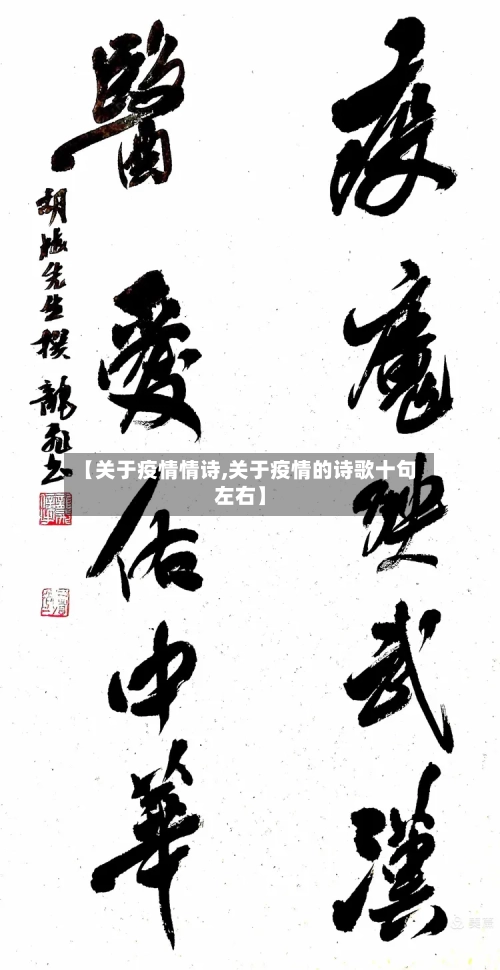 疫魔殃武漢
醫愛佑中華
胡先生撰 龍飛书
【关于疫情情诗,关于疫情的诗歌十句
左右】